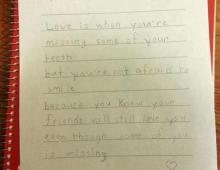 Love is when you're
missing some of your
teeth
but you're not afraid to
smile
because you know your
friends will still love you
even though some of you
is missing